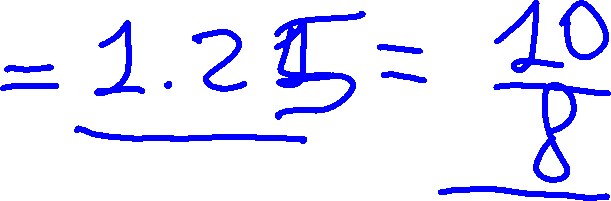 = 1.25 = 10/8